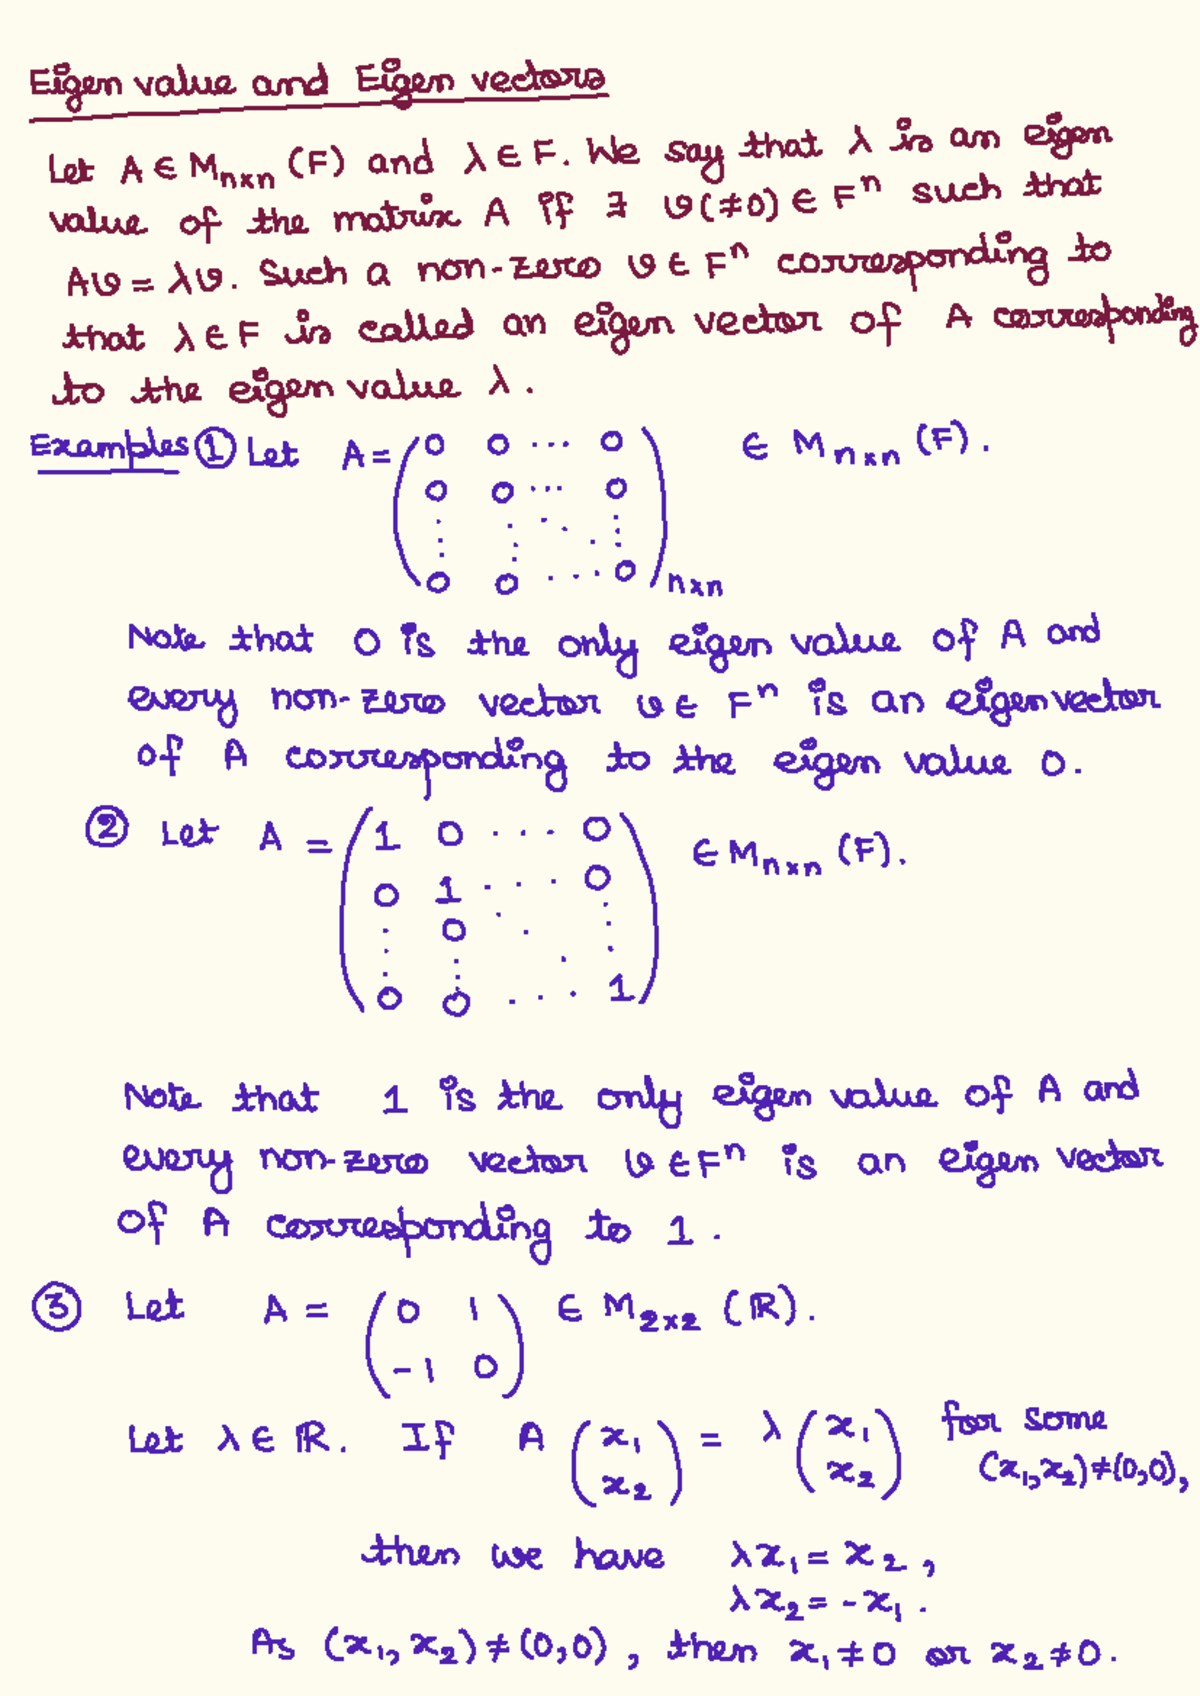 Eigen value and Eigen vectors
Let A ∈ M_{n×n} (F) and λ ∈ F. We say that λ is an eigen
value of the matrix A if ∃ v(≠0) ∈ F^n such that
Av = λv. Such a non-zero v ∈ F^n corresponding to
that λ ∈ F is called an eigen vector of A corresponding
to the eigen value λ.
Examples ① Let A = ( 0 0 ... 0 ∈ M_{n×n} (F).
0 0 ... 0
⋮ ⋮ ⋱ ⋮
0 0 ... 0 )_{n×n}
Note that 0 is the only eigen value of A and
every non-zero vector v ∈ F^n is an eigenvector
of A corresponding to the eigen value 0.
② Let A = ( 1 0 .... 0 ∈ M_{n×n} (F).
0 1 ... 0
⋮ 0 ⋱ ⋮
0 0 ... 1 )
Note that 1 is the only eigen value of A and
every non-zero vector v ∈ F^n is an eigen vector
of A corresponding to 1.
③ Let A = ( 0 1 ∈ M_{2×2} (ℝ).
-1 0 )
Let λ ∈ ℝ. If A (x_1 x_2) = λ (x_1 x_2) for some
(x_1, x_2) ≠ (0,0),
then we have λx_1 = x_2,
λx_2 = -x_1.
As (x_1, x_2) ≠ (0,0), then x_1 ≠ 0 or x_2 ≠ 0.